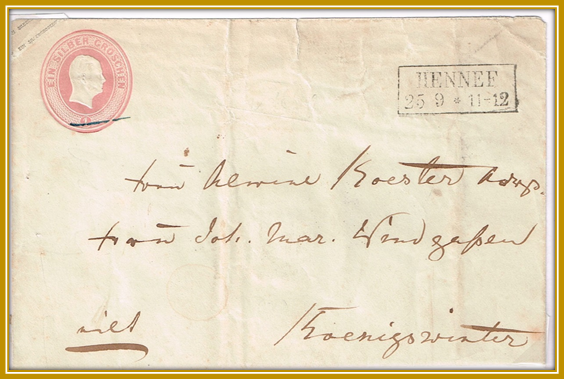 EIN SILBER GROSCHEN
1
HENNEF
25 9 * 11-12
Frau Alwine Koester
Frau Joh. Mar. Windgaßen
eilt
Koenigswinter